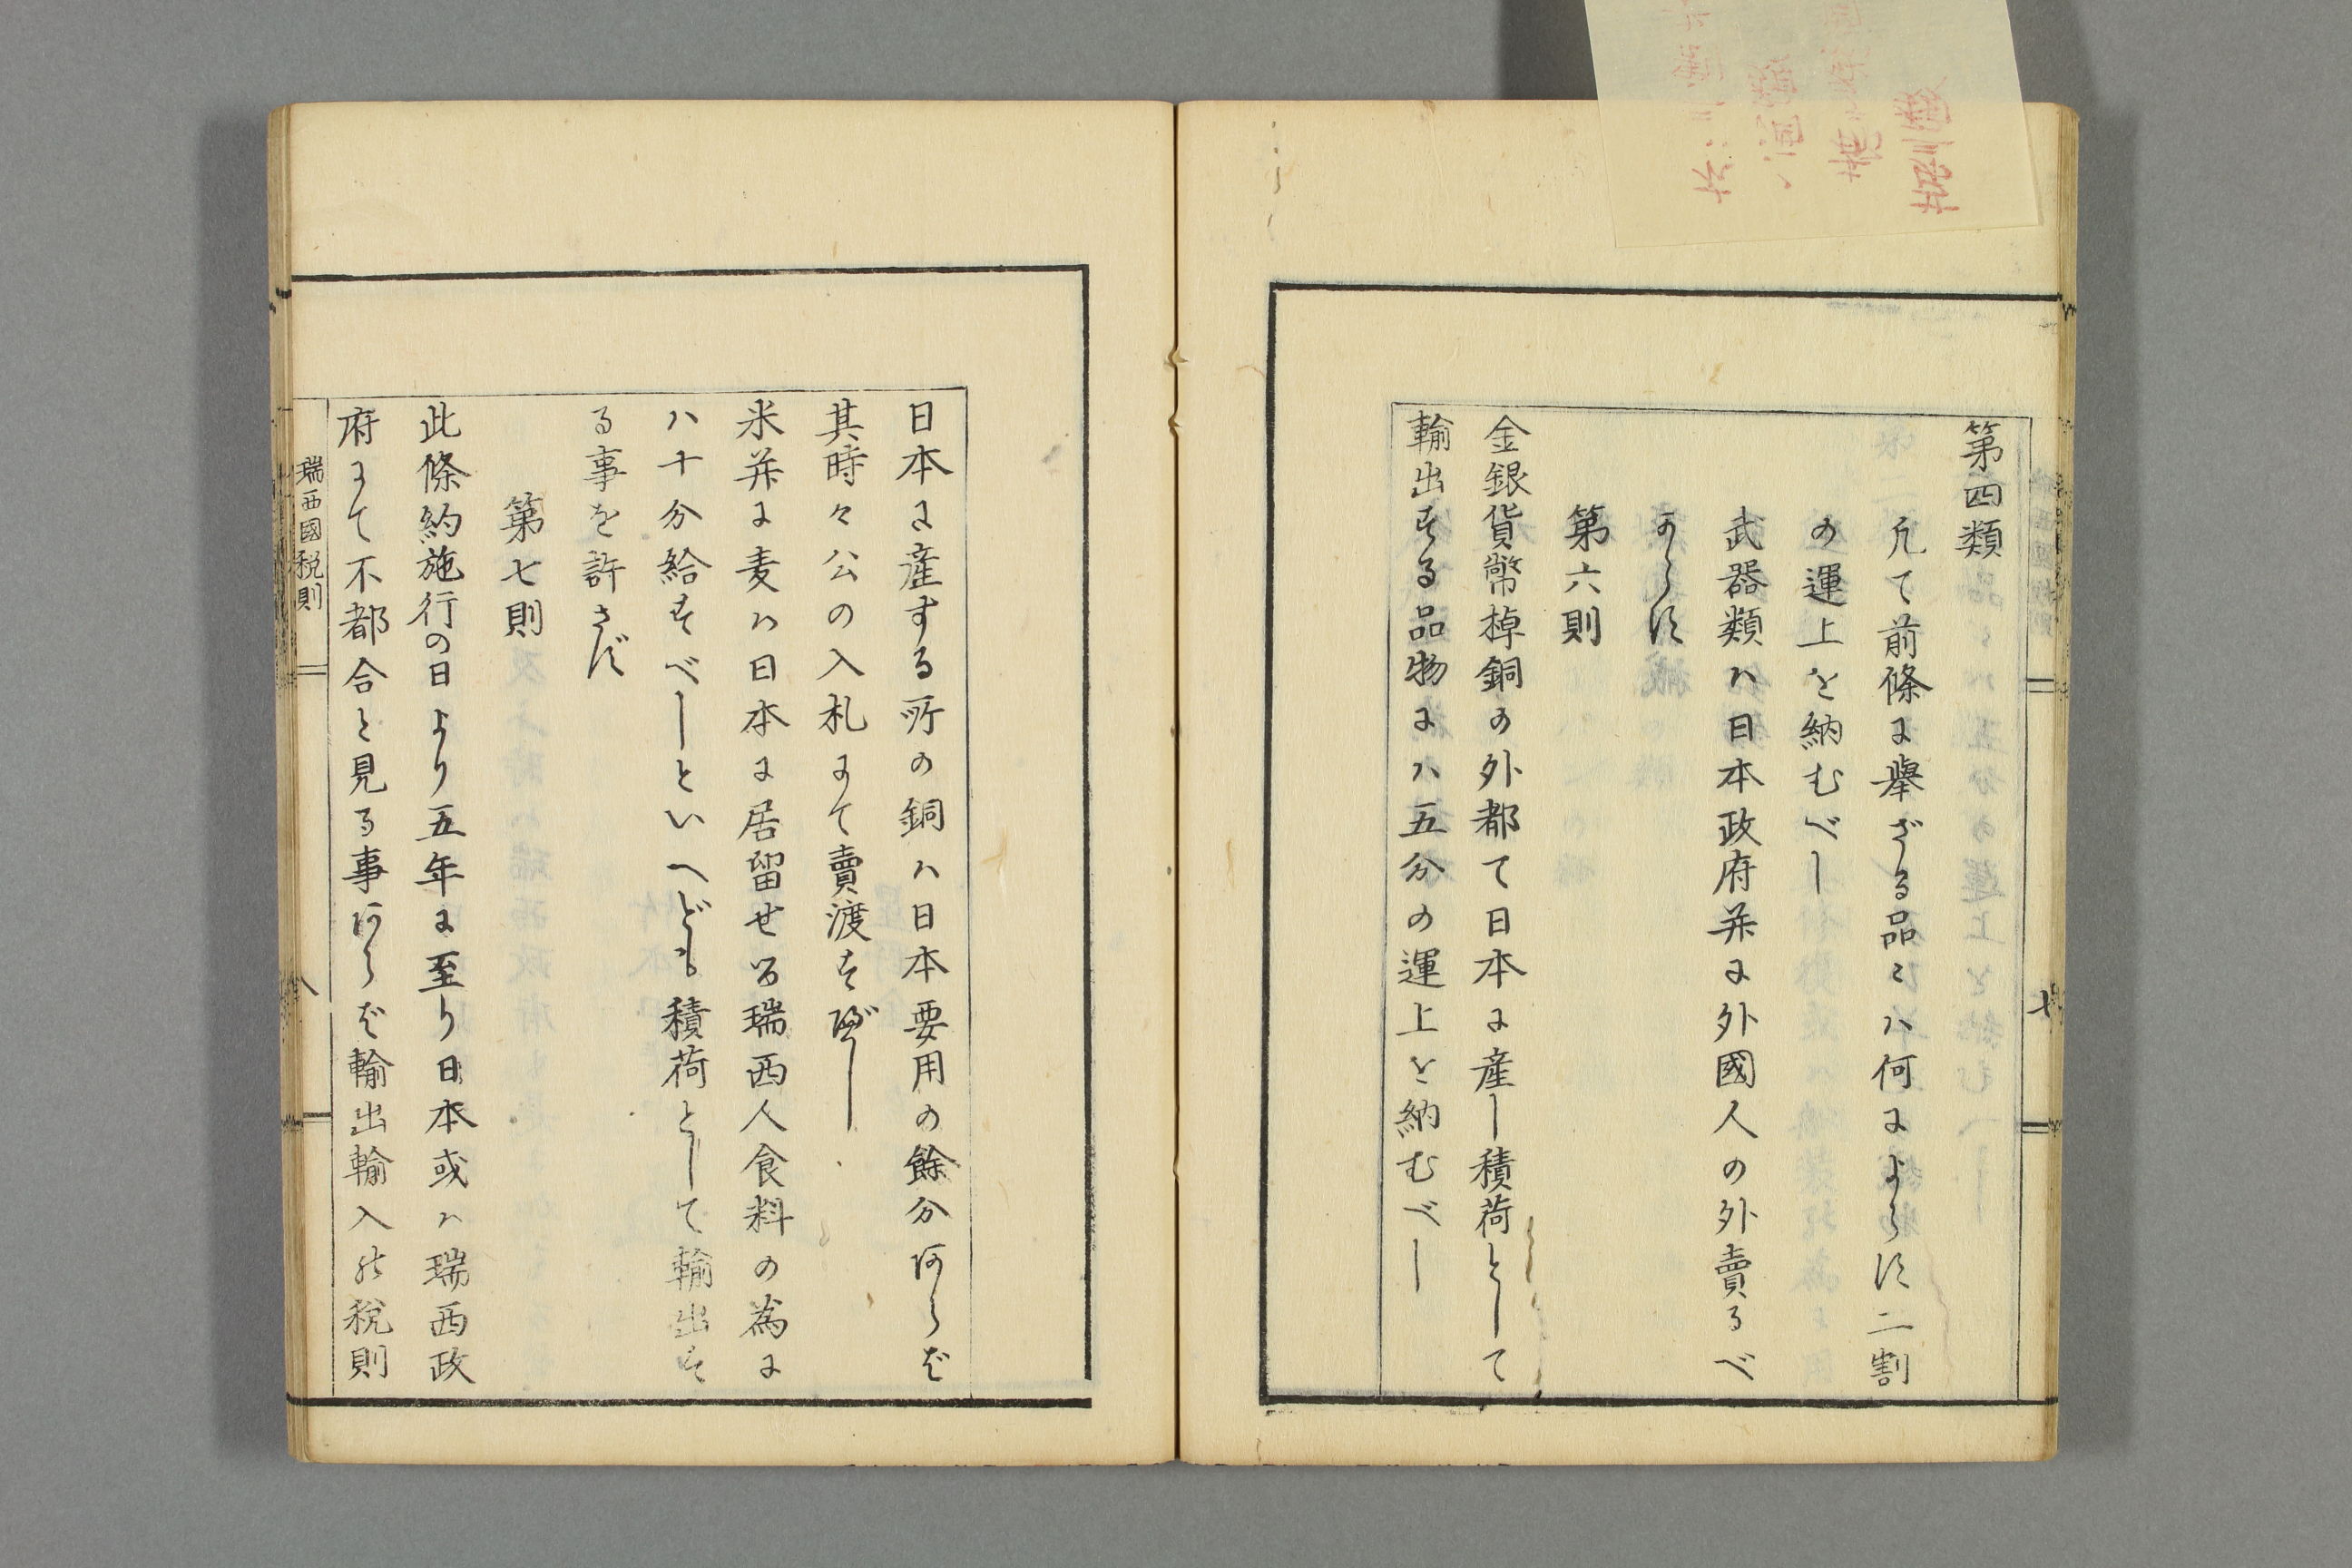 第四類
凡て前條に擧ざる品々ハ何によらす二割
の運上を納むべし
武器類ハ日本政府并に外國人の外賣るべ
からす
第六則
金銀貨幣棹銅の外都て日本に産し積荷として
輸出する品物にハ五分の運上を納むべし
七
日本に産する所の銅ハ日本要用の餘分あらば
其時々公の入札にて賣渡すべし
米并に麦ハ日本に居留せる瑞西人食料の為に
ハ十分給すべしといへども積荷として輸出す
る事を許さず
第七則
此條約施行の日より五年に至り日本或ハ瑞西政
府にて不都合と見る事あらば輸出輸入の税則
瑞西國税則
八